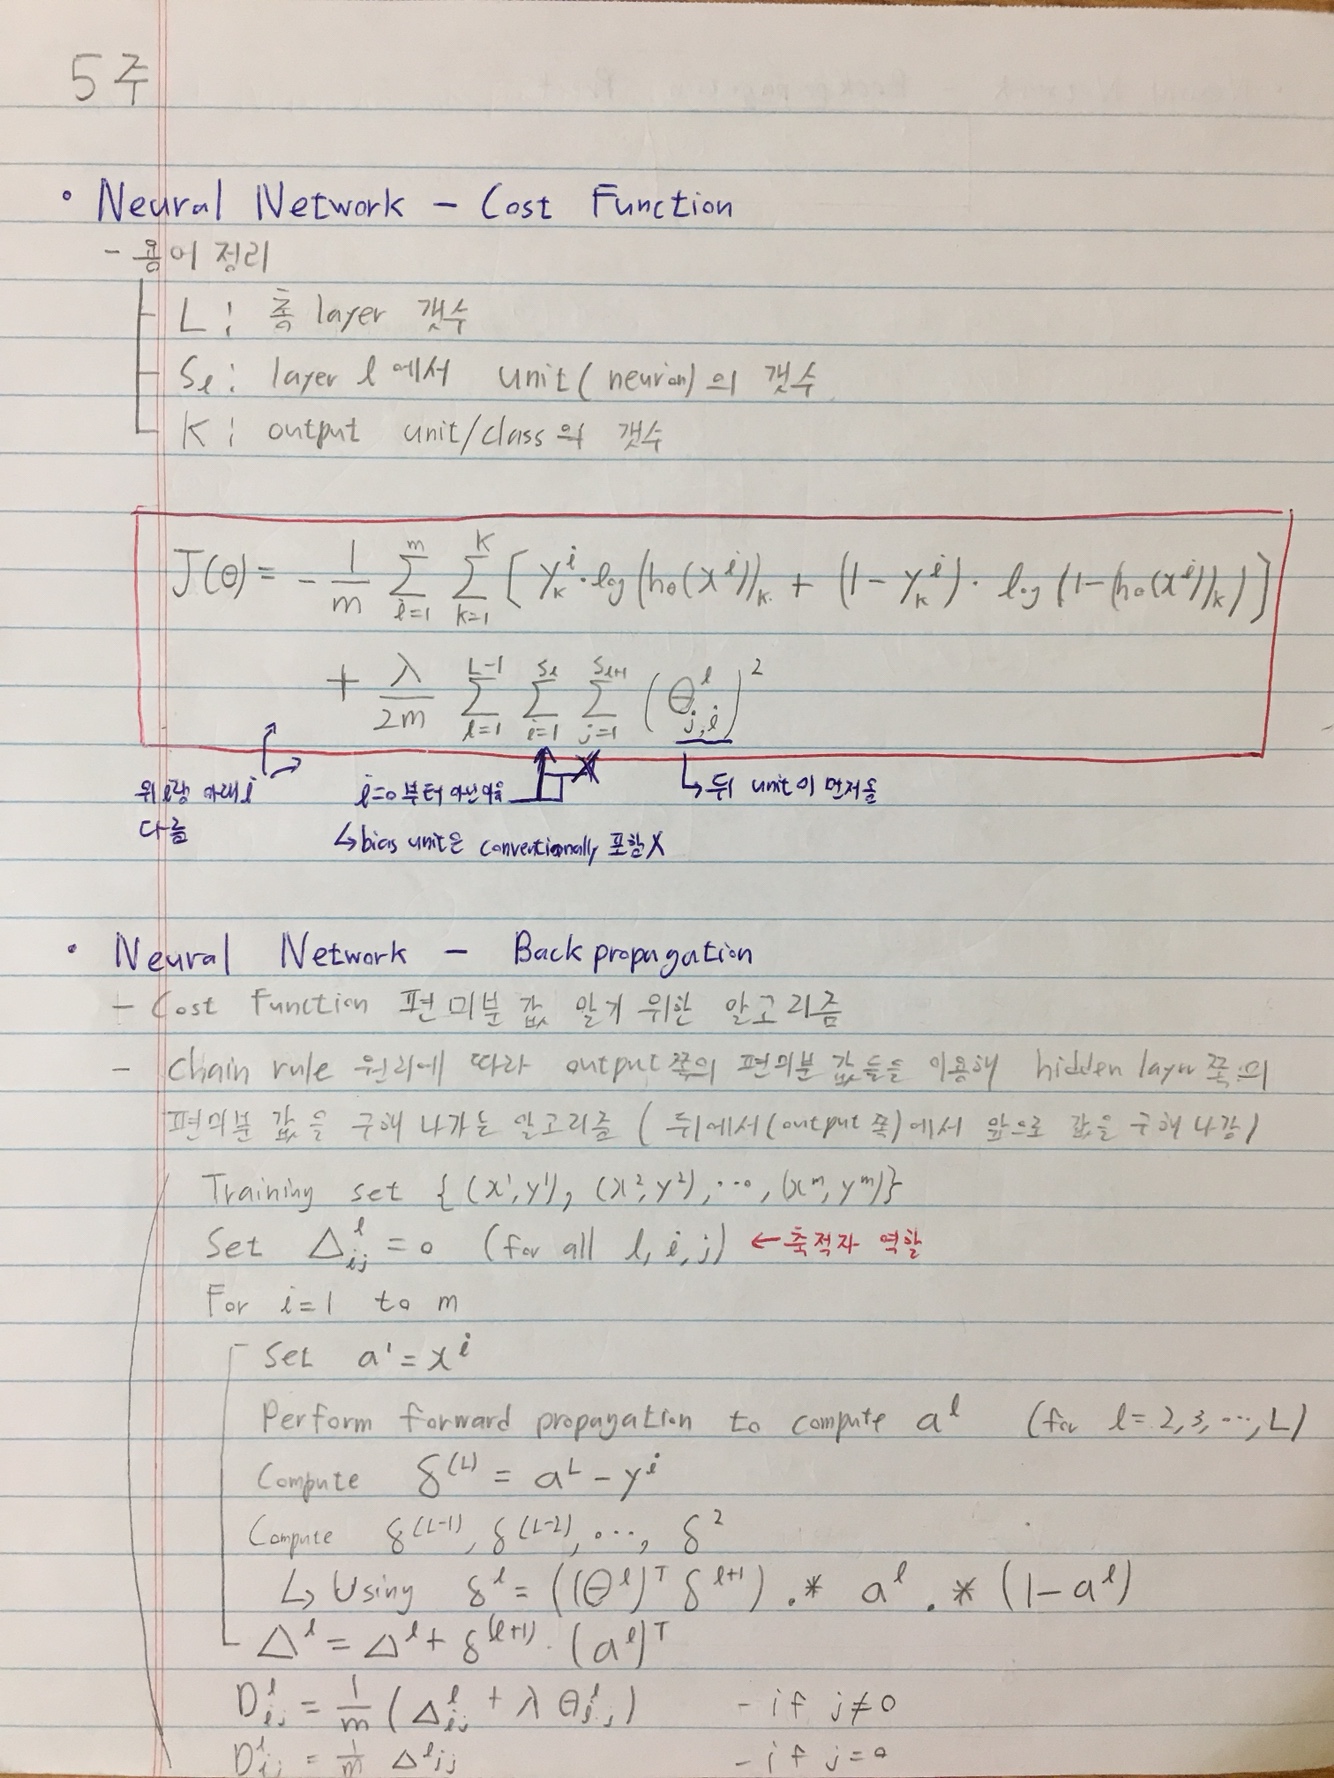 5주
• Neural Network - Cost Function
- 용어 정리
L : 총 layer 갯수
Sₗ : layer l 에서 unit(neuron)의 갯수
K : output unit/class의 갯수
J(θ) = - 1/m Σ_{i=1}^{m} Σ_{k=1}^{K} [ y_k^i · log(h_θ(x^i))_k + (1 - y_k^i) · log(1-(h_θ(x^i))_k) ]
+ λ/2m Σ_{l=1}^{L-1} Σ_{i=1}^{S_l} Σ_{j=1}^{S_{l+1}} (θ_{j,i}^l)^2
위 i랑 아래 i 다름
i=0 부터 아닌 이유
↳ 뒤 unit이 먼저 옴
↳ bias unit은 conventionally 포함 X
• Neural Network - Backpropagation
- Cost Function 편미분 값 알기 위한 알고리즘
- Chain rule 원리에 따라 output쪽의 편미분 값들을 이용해 hidden layer 쪽의
편미분 값을 구해 나가는 알고리즘 ( 뒤에서(output 쪽)에서 앞으로 값을 구해 나감)
Training set {(x^1,y^1), (x^2,y^2), ..., (x^m,y^m)}
Set Δ_{ij}^l = 0 (for all l, i, j) ← 축적자 역할
For i=1 to m
Set a^1 = x^i
Perform forward propagation to compute a^l (for l = 2, 3, ..., L)
Compute δ^(L) = a^L - y^i
Compute δ^(L-1), δ^(L-2), ..., δ^2
↳ Using δ^l = ((θ^l)^T δ^{l+1}) .* a^l .* (1-a^l)
Δ^l = Δ^l + δ^(l+1) · (a^l)^T
D_{i,j}^l = 1/m (Δ_{ij}^l + λ θ_{i,j}^l) - if j≠0
D_{i,j}^l = 1/m Δ^l ij - if j=0